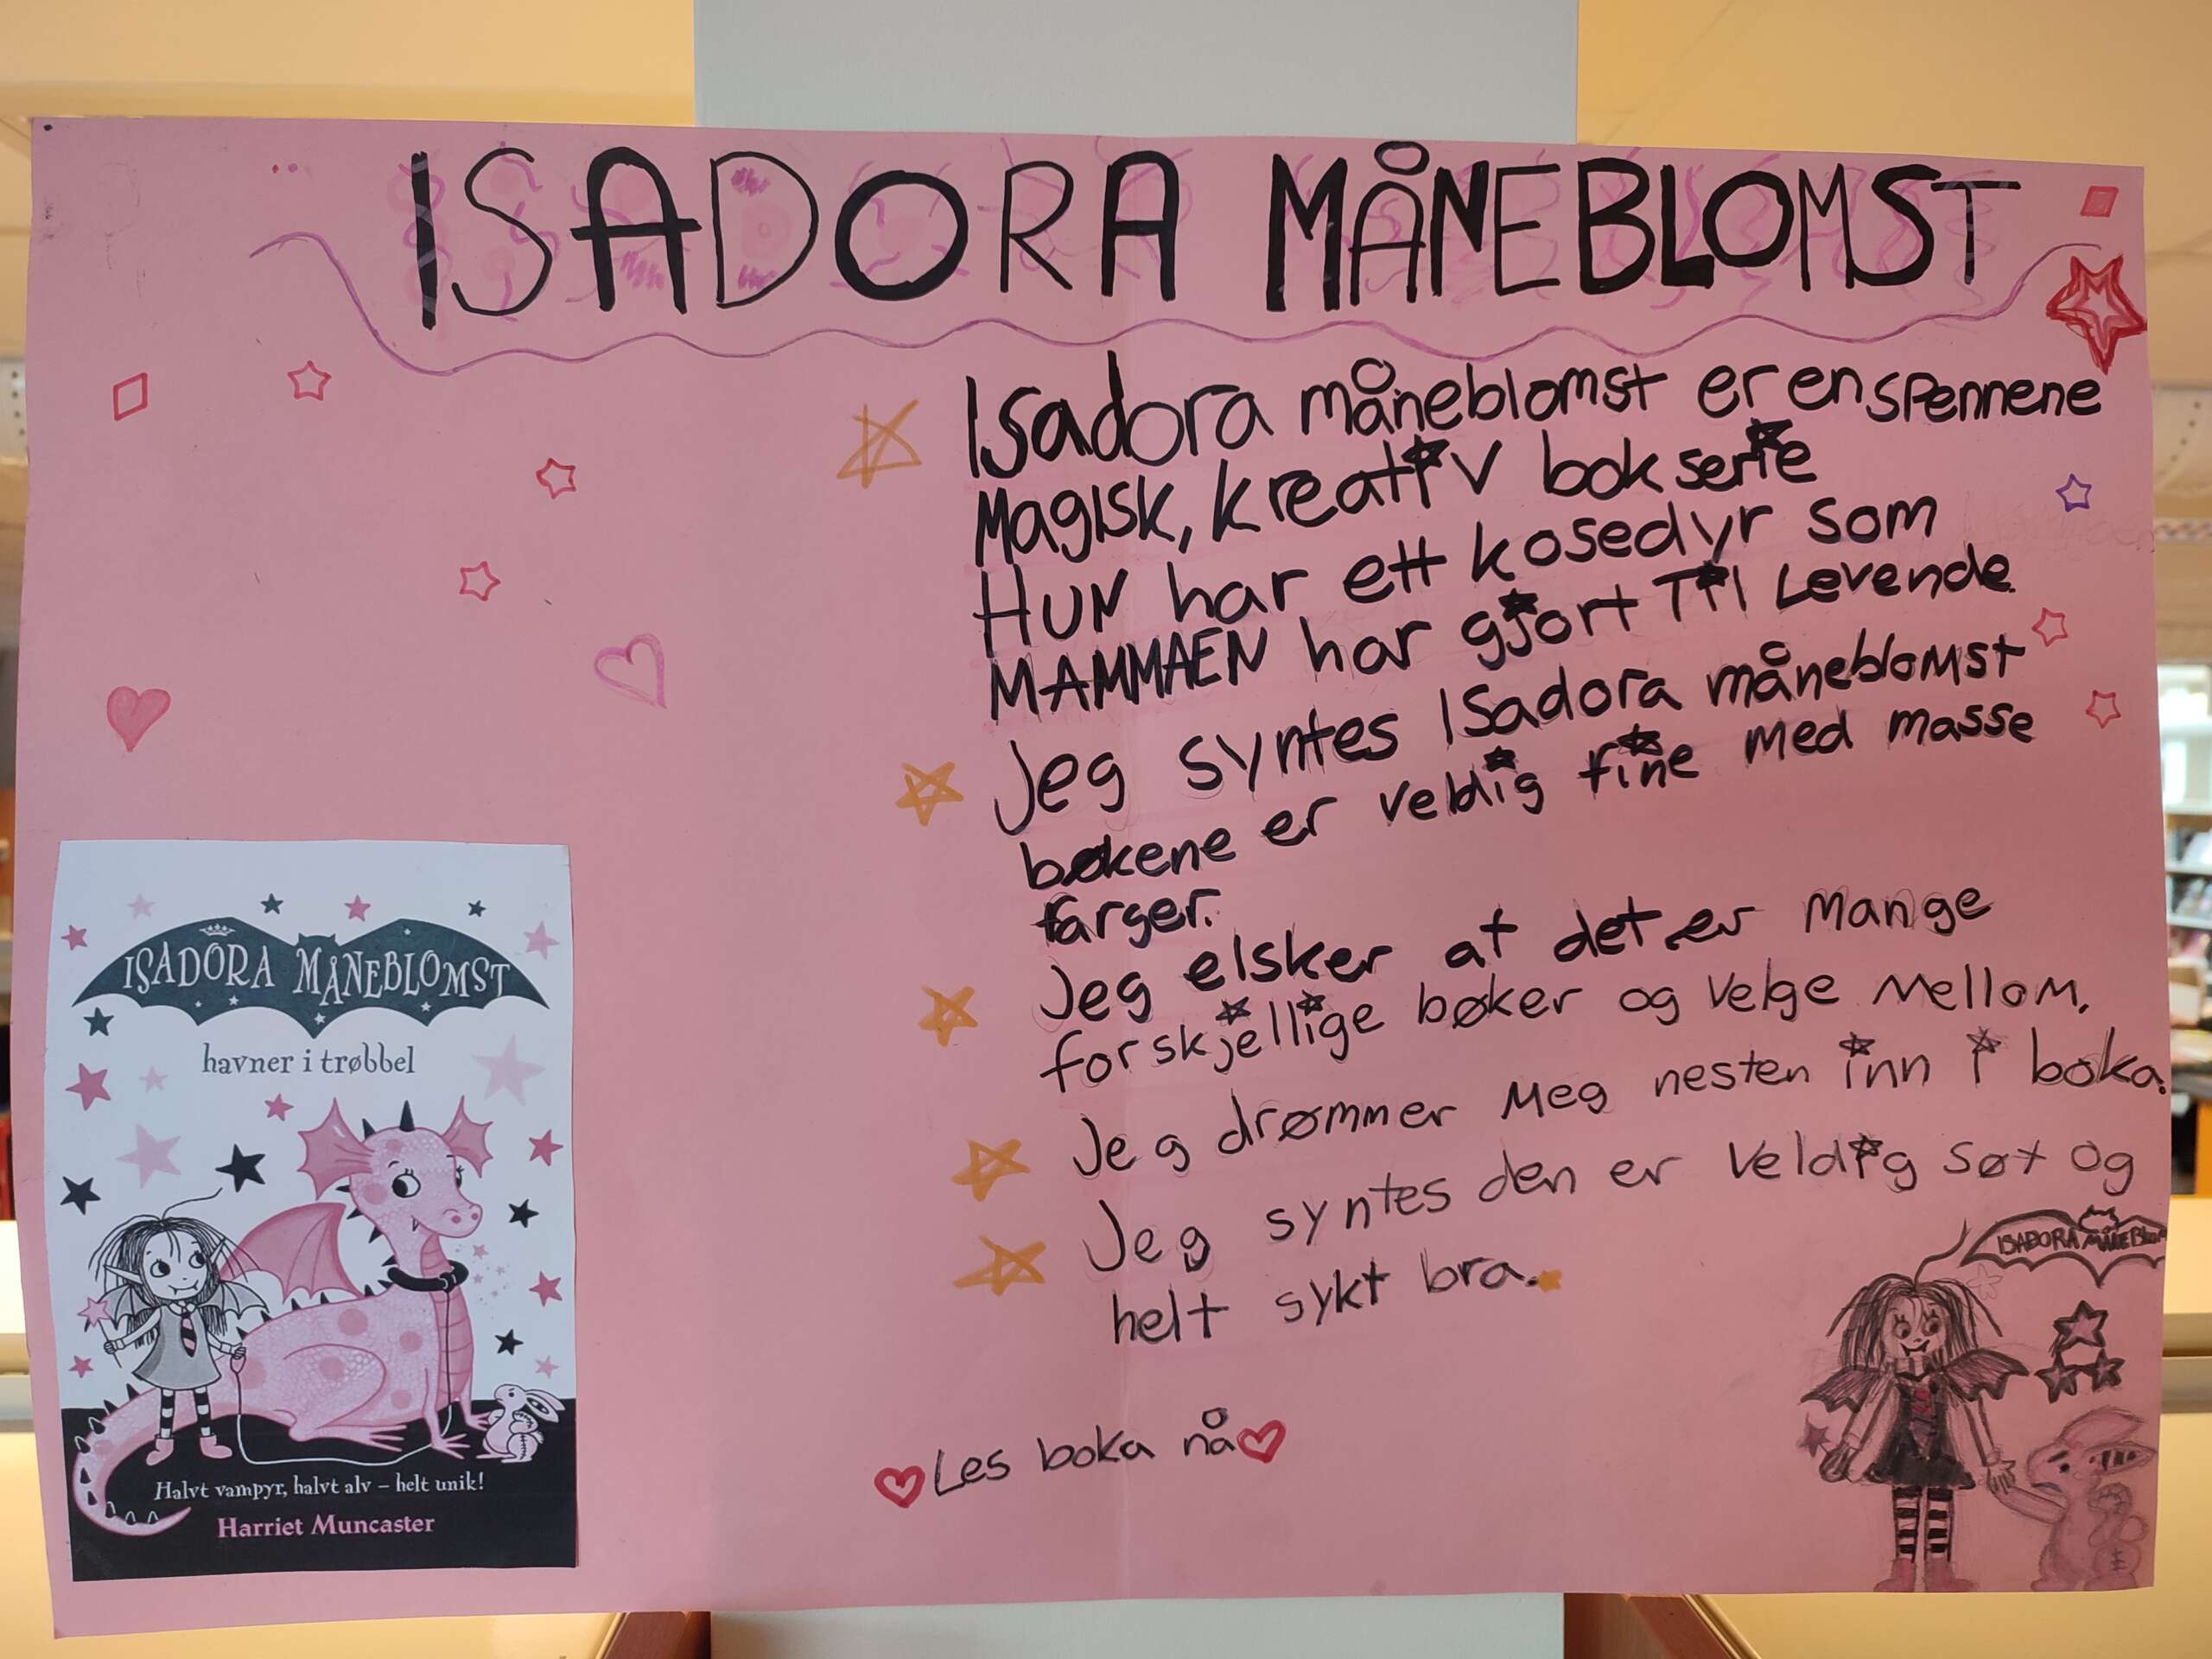 ISADORA MÅNEBLOMST
Isadora måneblomst er en spennene
Magisk, kreativ bok serie
HUN har ett kosedyr som
MAMMAEN har gjort Til Levende
Jeg syntes Isadora måneblomst
bøkene er veldig fine med masse
farger.
Jeg elsker at det er mange
forskjellige bøker og velge mellom.
Jeg drømmer meg nesten inn i boka.
Jeg syntes den er veldig søt og
helt sykt bra.
Les boka nå
ISADORA MÅNEBLOMST
havner i trøbbel
Halvt vampyr, halvt alv – helt unik!
Harriet Muncaster
ISADORA MÅNEBLOM